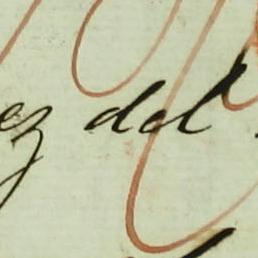 ez del